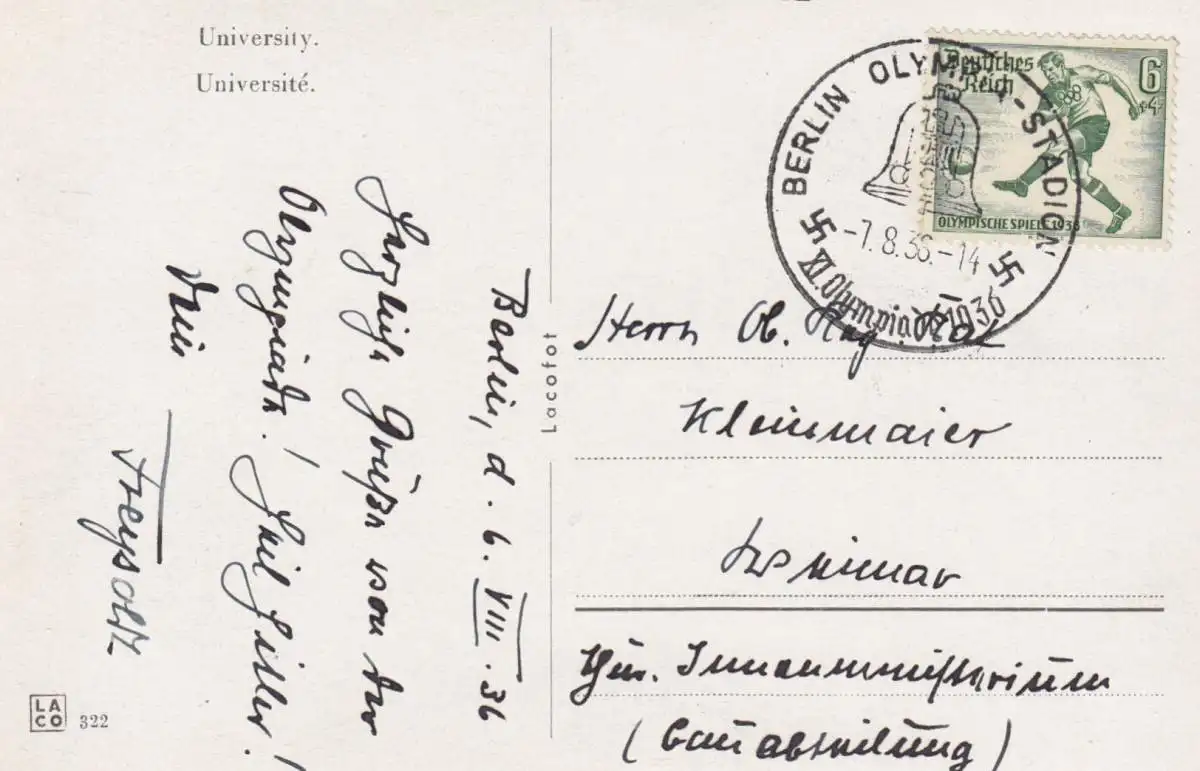 University.
Université.
Deutsches
Reich
6
+4
OLYMPISCHE SPIELE 1936
BERLIN OLYMPIA-STADION
-7.8.36.-14
XI. Olympiade 1936
Berlin, d. 6. VIII. 36
Herzliche Grüße von der
Olympiade! Heil Hitler!
Dein
Freysoldt
Lacofot
Herrn Ob. Reg. Rat
Kleinmaier
Weimar
Thür. Innenministerium
(Bauabteilung)
LA
CO
322